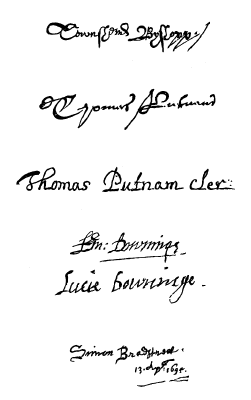 Townsend Bishopp
Thomas Putnam
Thomas Putnam cler:
Em: Downing
Lucie Downinge.
Simon Bradstreet.